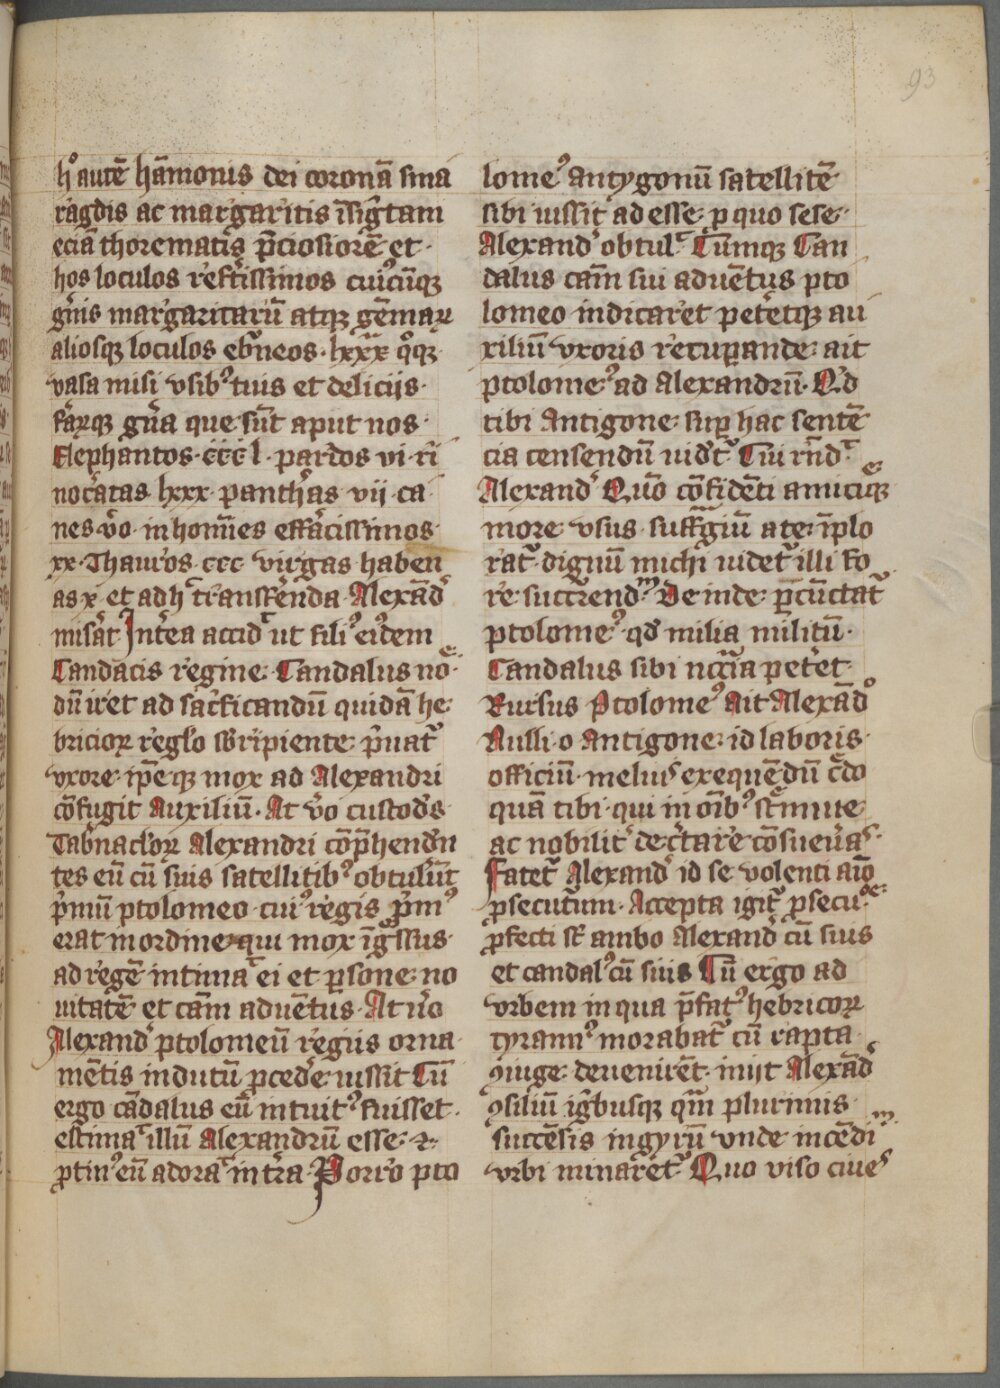 93
h° autē hāmonis dei coronā sma
ragdis ac margaritis īsiḡtam
eciā thorematis p̄ciosiorē et
hos loculos refertissimos cuiꝰcūqꝫ
gn̄is margaritarū atqꝫ gēmaꝝ
aliosqꝫ loculos ebn̄eos · lxxx q̊qꝫ
vasa misi vsibꝰ tuis et deliciis
farꝝqꝫ gn̄a que sūt aput nos
Elephantos · cccc l · pardos vi · ri
noc̄atas lxxx · panthas vii · ca
nes vͦo · in homīes efficacissimos
xx · Thauros · ccc · virgas haben
as x et adhͨ transferenda · Alexād
misat Int̄ea accidͭ ut filiꝰ eiꝰdem
Candacis regine · Candalus no͛
dū iret ad sac̄ficandū quidā he
bricioꝝ reglo sbripiente · pͥuatꝰ
vxore · ip̄eqꝫ mox ad Alexandri
cōfugit Auxiliū · At vͦo custodes
Tabnacloꝝ Alexandri cōp̄henden
tes eū cū suis satellitibꝰ obtulerūt
pͥmū ptolomeo · cui regis pͥmꝰ
erat in ordine · qui mox īgressus
ad regē intimaͭ ei et psone no
uitatē et cām aduētus · At vͦo
Alexandꝰ ptolomeū regiis orna
mētis indutū pcedͤe iussit Cū
ergo cādalus eū intuitꝰ fuisset ·
estimaͭ illū Alexandrū esse · ⁊
ꝓtinꝰ eū adoraͭ in tͤra · Porro pto
lomeꝰ antygonū satellitē
sibi iussit ad esse · p quo sese ·
Alexandꝰ obtulͭ Cūmqꝫ Can
dalus cām sui aduētus pto
lomeo indicaret petēꝫqꝫ au
xiliū vxoris recuperande · ait
ptolomeꝰ ad Alexandrū · Qͥd
tibi Antigone · sup hac sentē
cia censendū uidͤtꝰ Cui rn̄dͭ
Alexandꝰ Quō cōfidēti amiceqꝫ
more vsus · suffͣgiū a te · īplo
ratꝰ · dignū michi uidetꝰ illi fo
re · succurrendᷠ · Deinde · pcūctatꝰ
ptolomeꝰ · qd milia militū ·
Candalus sibi nccͣia petēet
Rursus Ptolomeꝰ Ait Alexādͦ
Nulli · o Antigone · id laboris ·
officiū · meliuˢ exequēdū cͤdo
quā tibi · qui in oībꝰ stͤnnue
ac nobilitꝰ decͭtare cōsueuͥasͭ ·
Fatetꝰ Alexandꝰ id se volenti aīo
ꝓsecuturum · Accepta igitꝰ ꝓsecuͦe ·
ꝓfecti sͭ ambo Alexandꝰ cū suis
et candalꝰ cū suis Cū ergo ad
vrbem in qua p̄fatꝰ hebricoꝝ
tyrannꝰ morabatꝰ cū rapta
ꝯiuge · deuenirēt · iniit Alexādꝰ
ꝯsiliū igͥbusqꝫ qᷠ plurimis ·
succēsis in gyrū vnde incēdiᷠ
vrbi minaretꝰ Quo viso ciueˢ